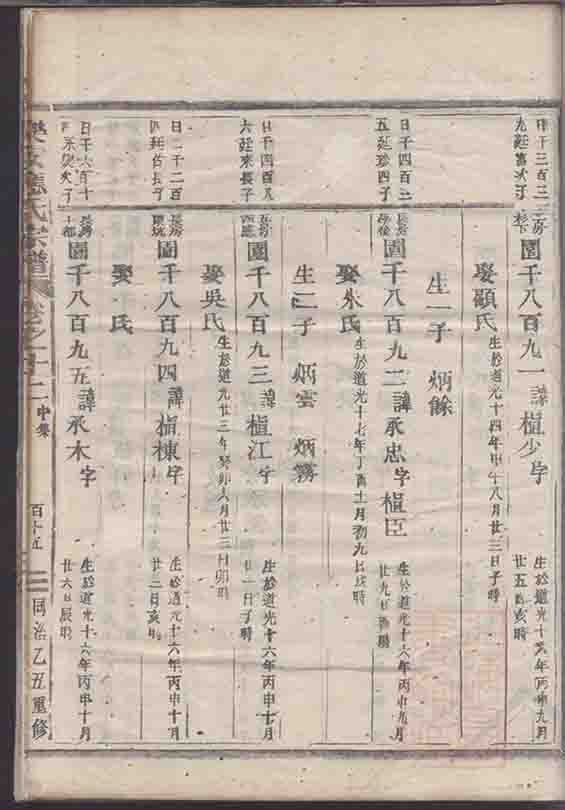 日千三百三
九廷富次子
房
圖千八百九一 諱楨少字
生於道光十六年丙申九月
廿五日亥時
娶顧氏
生於道光十四年甲午八月廿三日子時
生一子 炳餘
日千四百三
五廷珍四子
圖千八百九二 諱承忠字楨臣
生於道光十六年丙申九月
廿九日酉時
娶朱氏
生於道光十七年丁酉十一月初九日辰時
生二子 炳雲 炳霧
日千四百八
六廷來長子
圖千八百九三 諱楨江字
生於道光十六年丙申十月
廿一日子時
娶吳氏
生於道光廿三年癸卯八月廿三日卯時
日一千二百
四廷 長子
圖千八百九四 諱楨棟字
生於道光十六年丙申十月
廿二日亥時
娶 氏
日千六百十
次子
圖千八百九五 諱承木字
生於道光十六年丙申十月
廿六日辰時
氏宗譜
卷之二十二 中集
百十五
同治乙丑重修